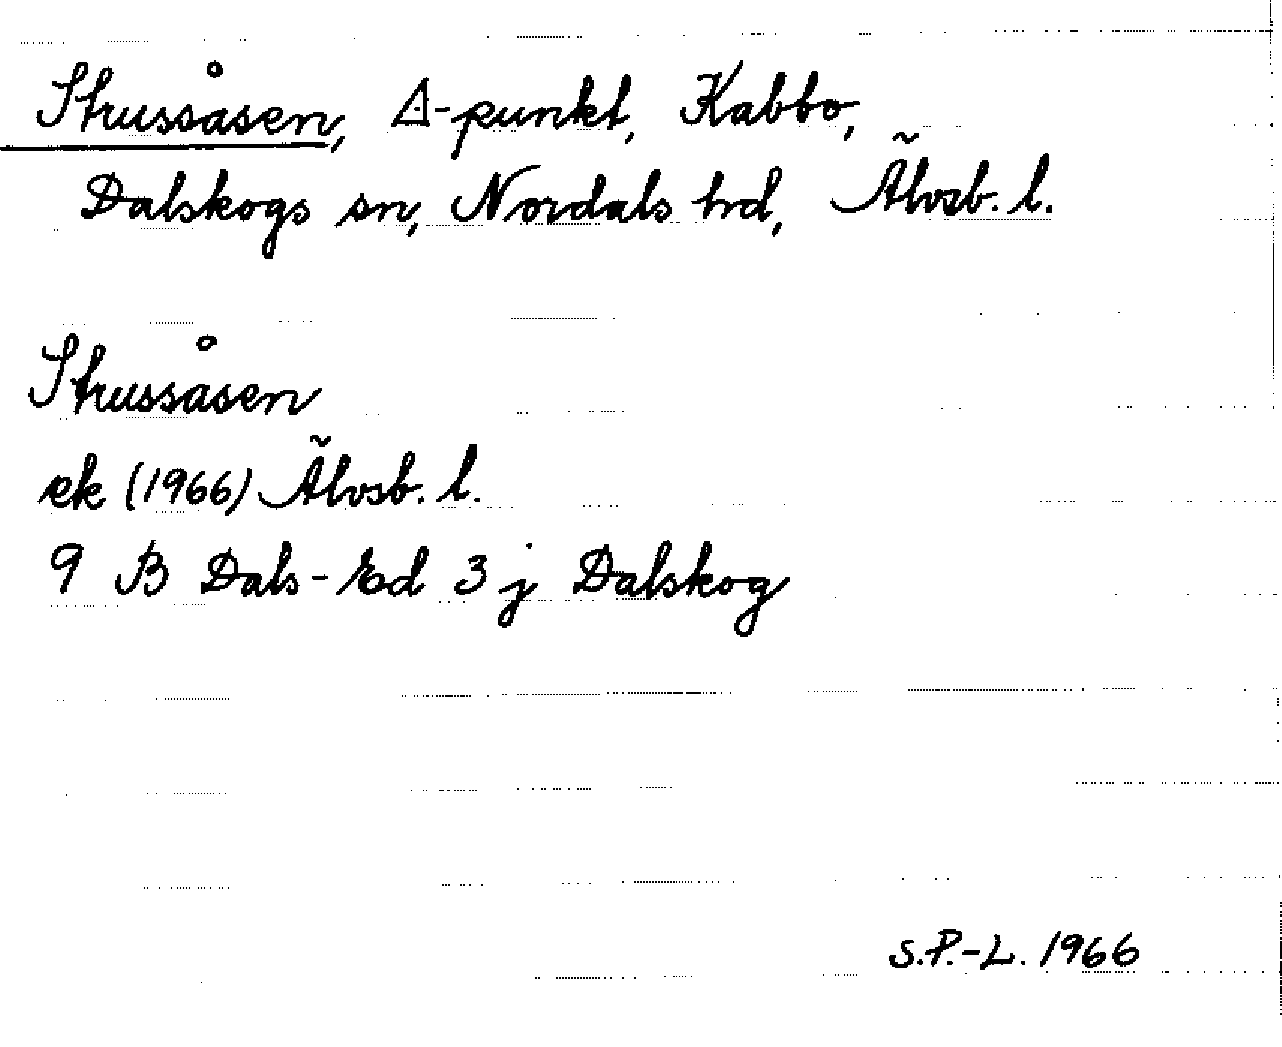 Strussåsen, △-punkt, Kabbo,
Dalskogs sn, Nordals hd, Älvsb. l.
Strussåsen
ek (1966) Älvsb. l.
9 B Dals-Ed 3 j Dalskog
S.P.-L. 1966